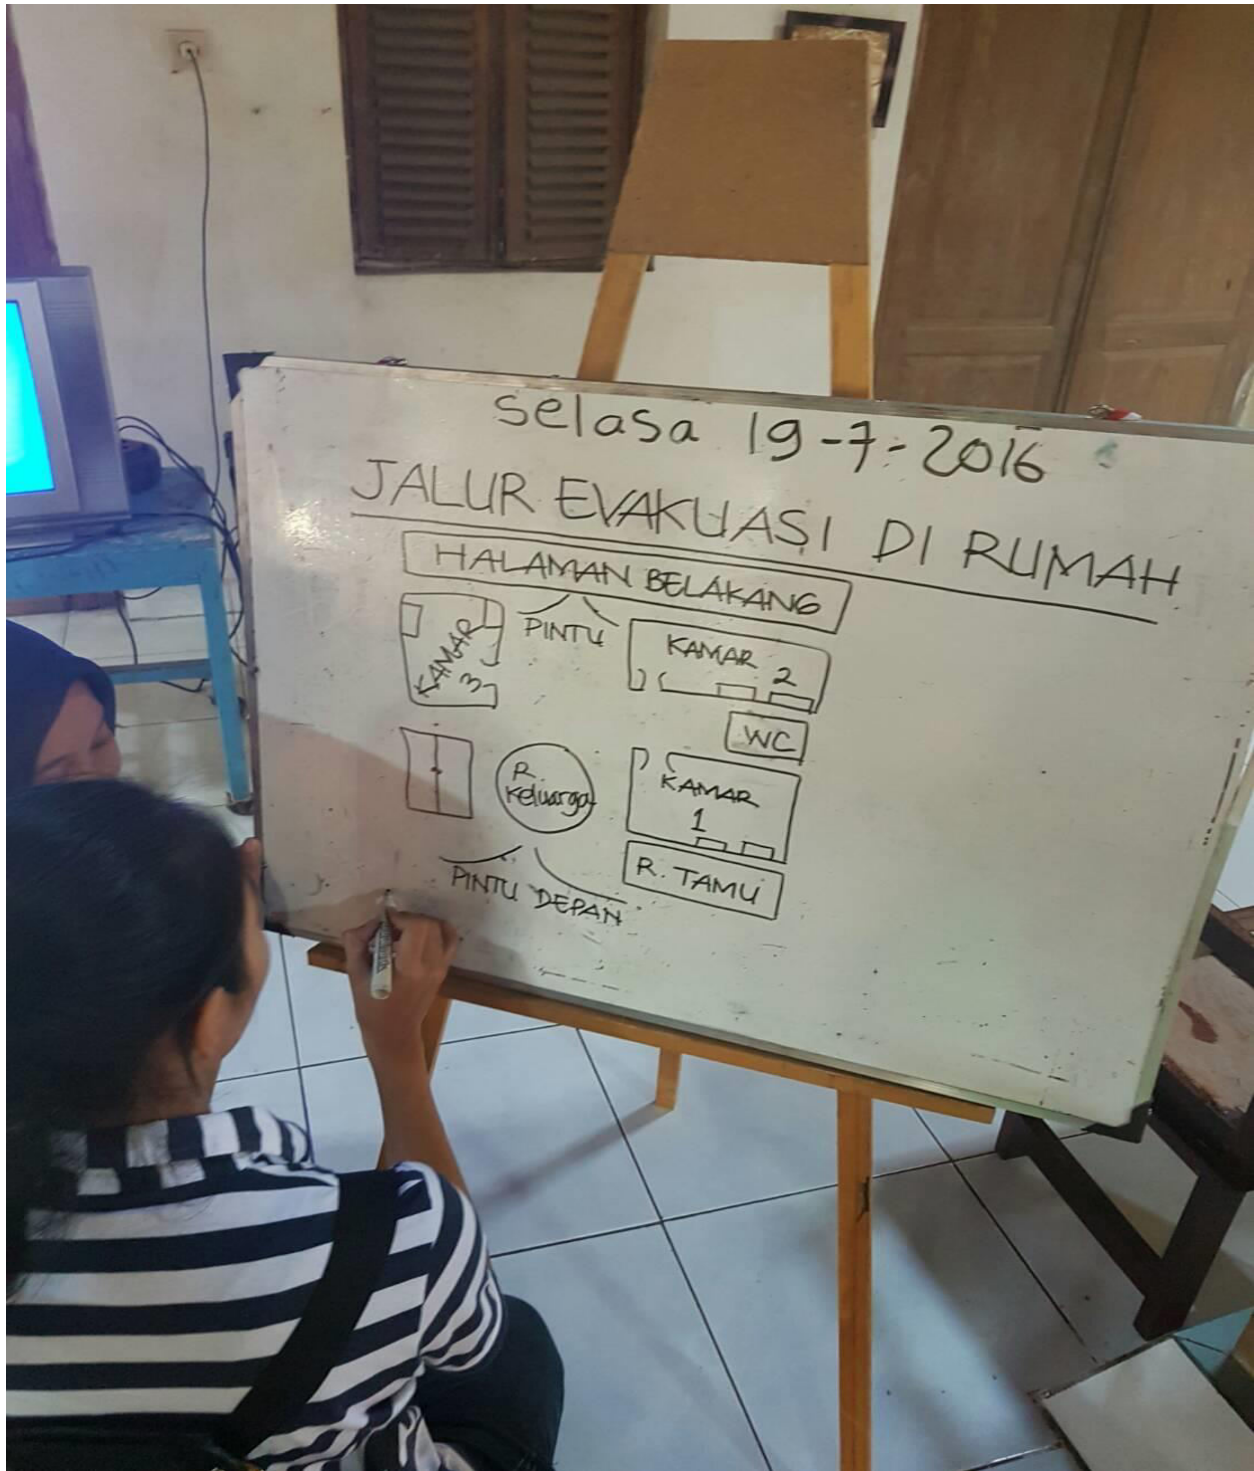 selasa 19-7-2016
JALUR EVAKUASI DI RUMAH
HALAMAN BELAKANG
PINTU
KAMAR 3
KAMAR 2
WC
R Keluarga
KAMAR 1
R. TAMU
PINTU DEPAN